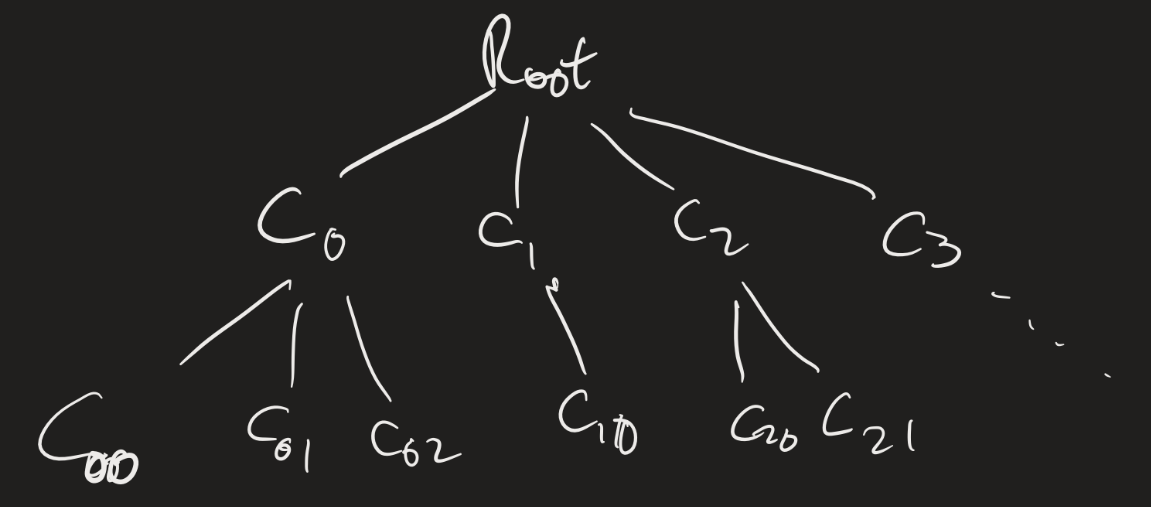 Root
C0 C1 C2 C3
C00 C01 C02 C10 C20 C21